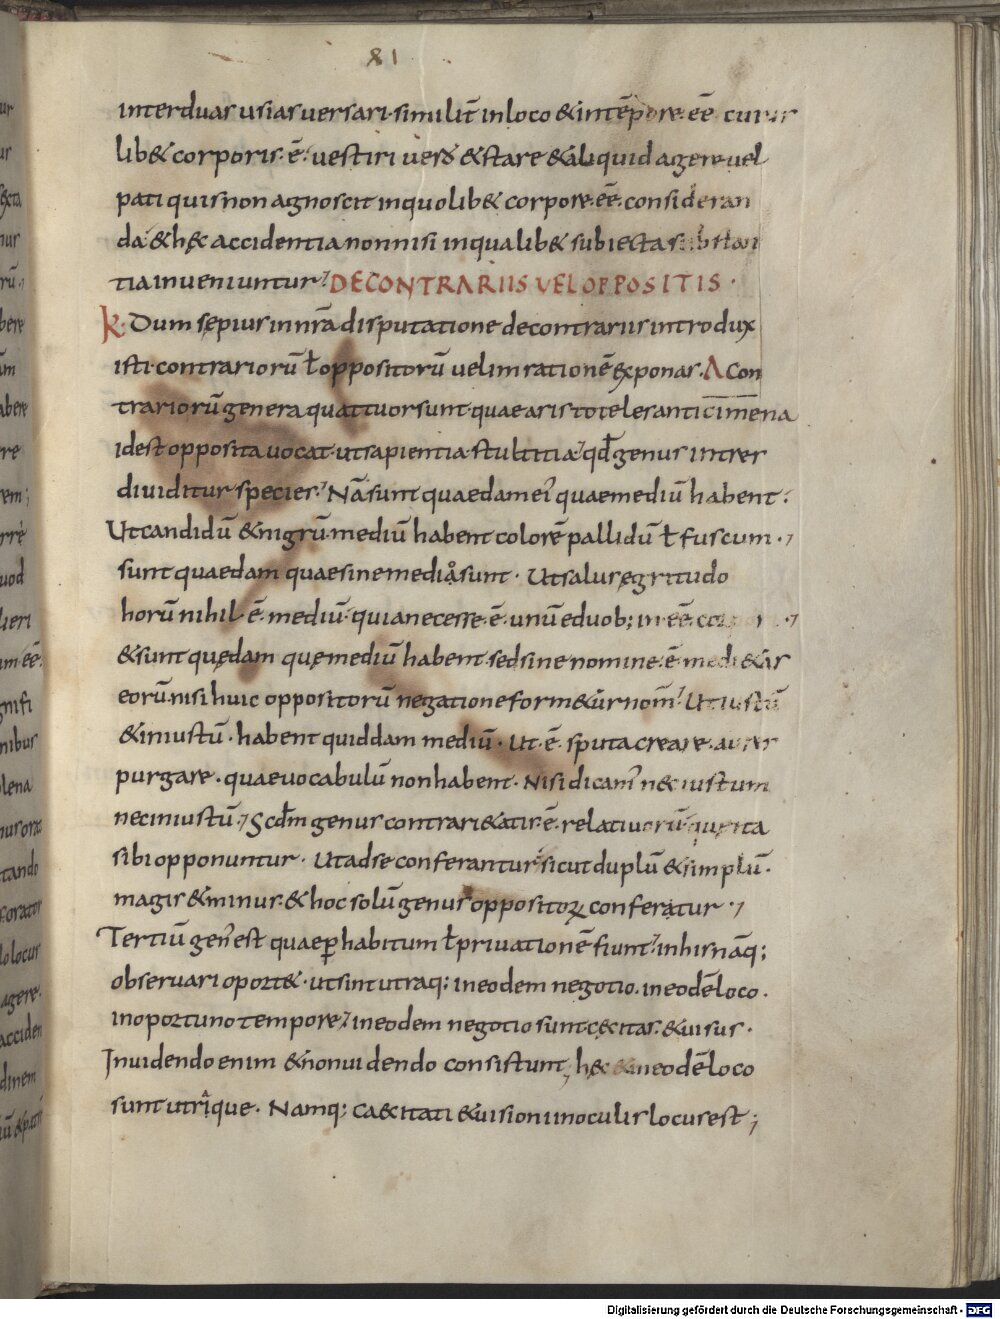 81
inter duas usias uersari. similit̄ in loco & in tēpore. eē cuius
lib& corporis. ē. uestiri uero & stare & aliquid agere uel
pati quis non agnoscit in quolib& corpore. eē. consideran
da. & hęc accidentia non nisi in qualib& subiecta substan
tia inueniuntur. DE CONTRARIIS VEL OPPOSITIS.
K. Dum sępius in nr̄a disputatione de contrariis introdux
isti. contrariorū ł oppositorū uelim rationē exponas. A Con
trariorū genera quattuor sunt quae aristoteles anticimena
idest opposita uocat. ut sapientia stultitia. qđ genus in tres
diuiditur species. Nā sunt quaedam ei' quae mediū habent.
Ut candidū & nigrū. mediū habent colorē pallidū ł fuscum.
sunt quaedam quae sine media sunt. Ut salus ęgritudo
horū nihil. ē. mediū. quia necesse. ē. unū e duob; in. eē.
& sunt quędam quę mediū habent. sed sine nomine. ē. medi&as
eorū. nisi huic oppositorū negatione form&ur nom̄. Ut iustū
& iniustū. habent quiddam mediū. Ut. ē. sputa creare. aures
purgare. quae uocabulū non habent. Nisi dicam' nec iustum
nec iniustū. Scđm genus contrari&atis. ē. relatiuorū. quę ita
sibi opponuntur. Ut ad se conferantur. sicut duplū & simplū.
magis & minus. & hoc solū genus oppositoꝝ conferatur.
Tertiū gen' est quae ꝑ habitum ł priuationē fiunt. in his nāq;
obseruari oport&. ut sint utraq; in eodem negotio. in eodē loco.
in oportuno tempore. in eodem negotio sunt cęcitas. & uisus.
In uidendo enim & non uidendo consistunt, hęc & in eodē loco
sunt utrique. Namq; caecitati & uisioni in oculis locus est;
Digitalisierung gefördert durch die Deutsche Forschungsgemeinschaft - DFG